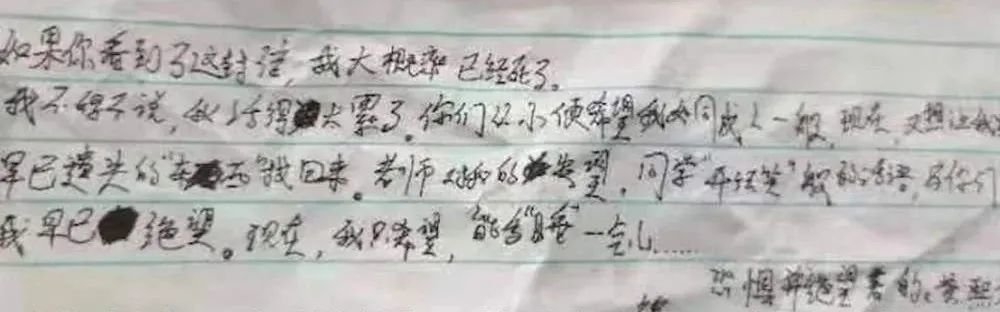 如果你看到了这封信，我大概率已经死了。
我不得不说，我活得太累了。你们从小便希望我如同成人一般，现在，又想让我
早已遗失的“东西”找回来。老师对我的失望，同学“开玩笑”般的话语，与你们
我早已绝望。现在，我只希望，能多“睡”一会儿……
恐惧并绝望着的